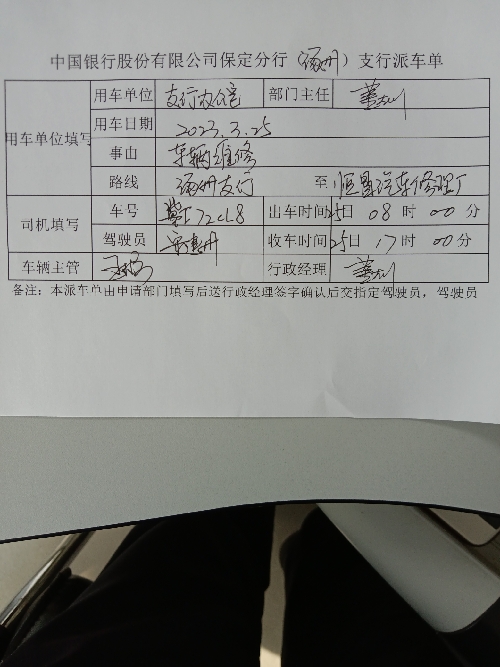 中国银行股份有限公司保定分行（涿州）支行派车单
用车单位填写 用车单位 支行办公室 部门主任
用车日期 2023.3.25
事由 车辆维修
路线 涿州支行 至： 恒昌汽车修理厂
司机填写 车号 出车时间 25日 08时 00分
驾驶员 收车时间 25日 17时 00分
车辆主管 行政经理
备注：本派车单由申请部门填写后送行政经理签字确认后交指定驾驶员，驾驶员